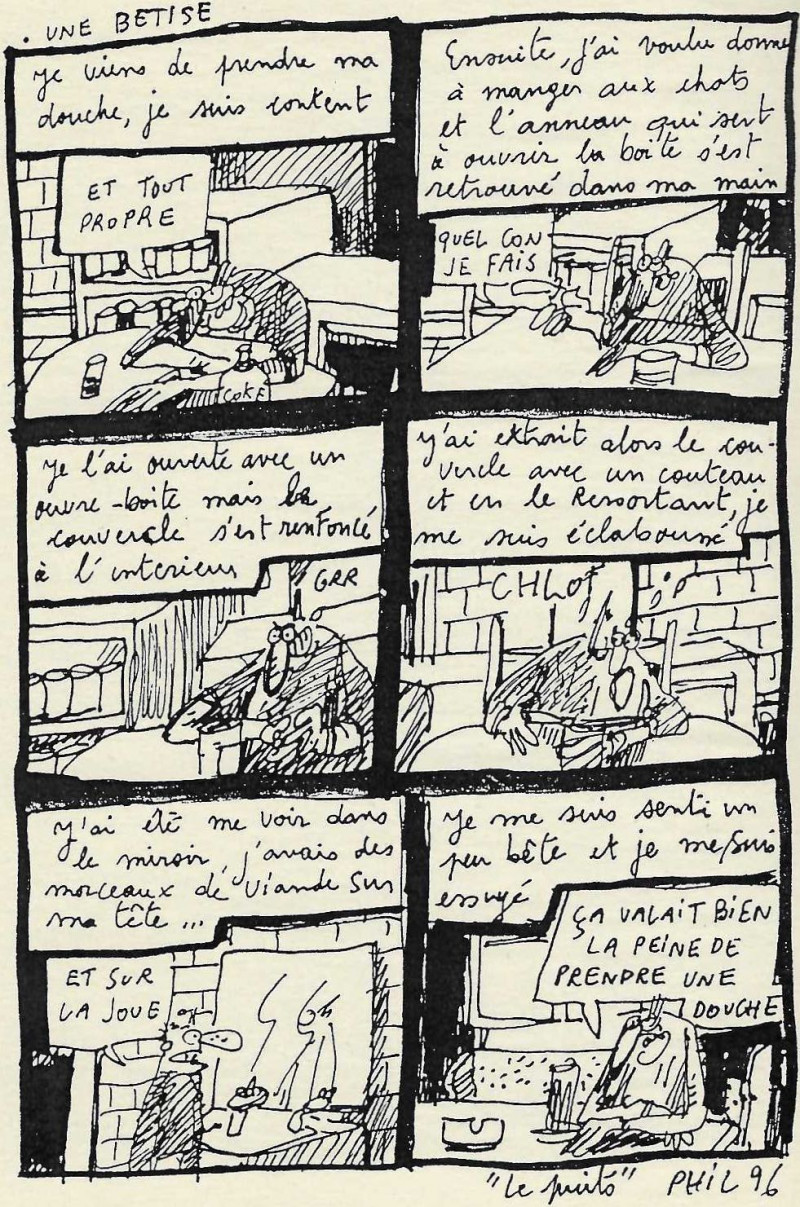 . UNE BETISE
je viens de prendre ma
douche, je suis content
ET TOUT
PROPRE
COKE
Ensuite, j'ai voulu donner
à manger aux chats
et l'anneau qui sert
à ouvrir la boite s'est
retrouvé dans ma main
QUEL CON
JE FAIS
je l'ai ouverte avec un
ouvre-boite mais le
couvercle s'est renfoncé
à l'interieur
GRR
j'ai extrait alors le cou-
vercle avec un couteau
et en le Ressortant, je
me suis éclaboussé
CHLOF
j'ai été me voir dans
le miroir, j'avais des
morceaux de viande sur
ma tête ...
ET SUR
LA JOUE
je me suis senti un
peu bête et je me suis
essuyé
ÇA VALAIT BIEN
LA PEINE DE
PRENDRE UNE
DOUCHE
"Le puits" PHIL 96